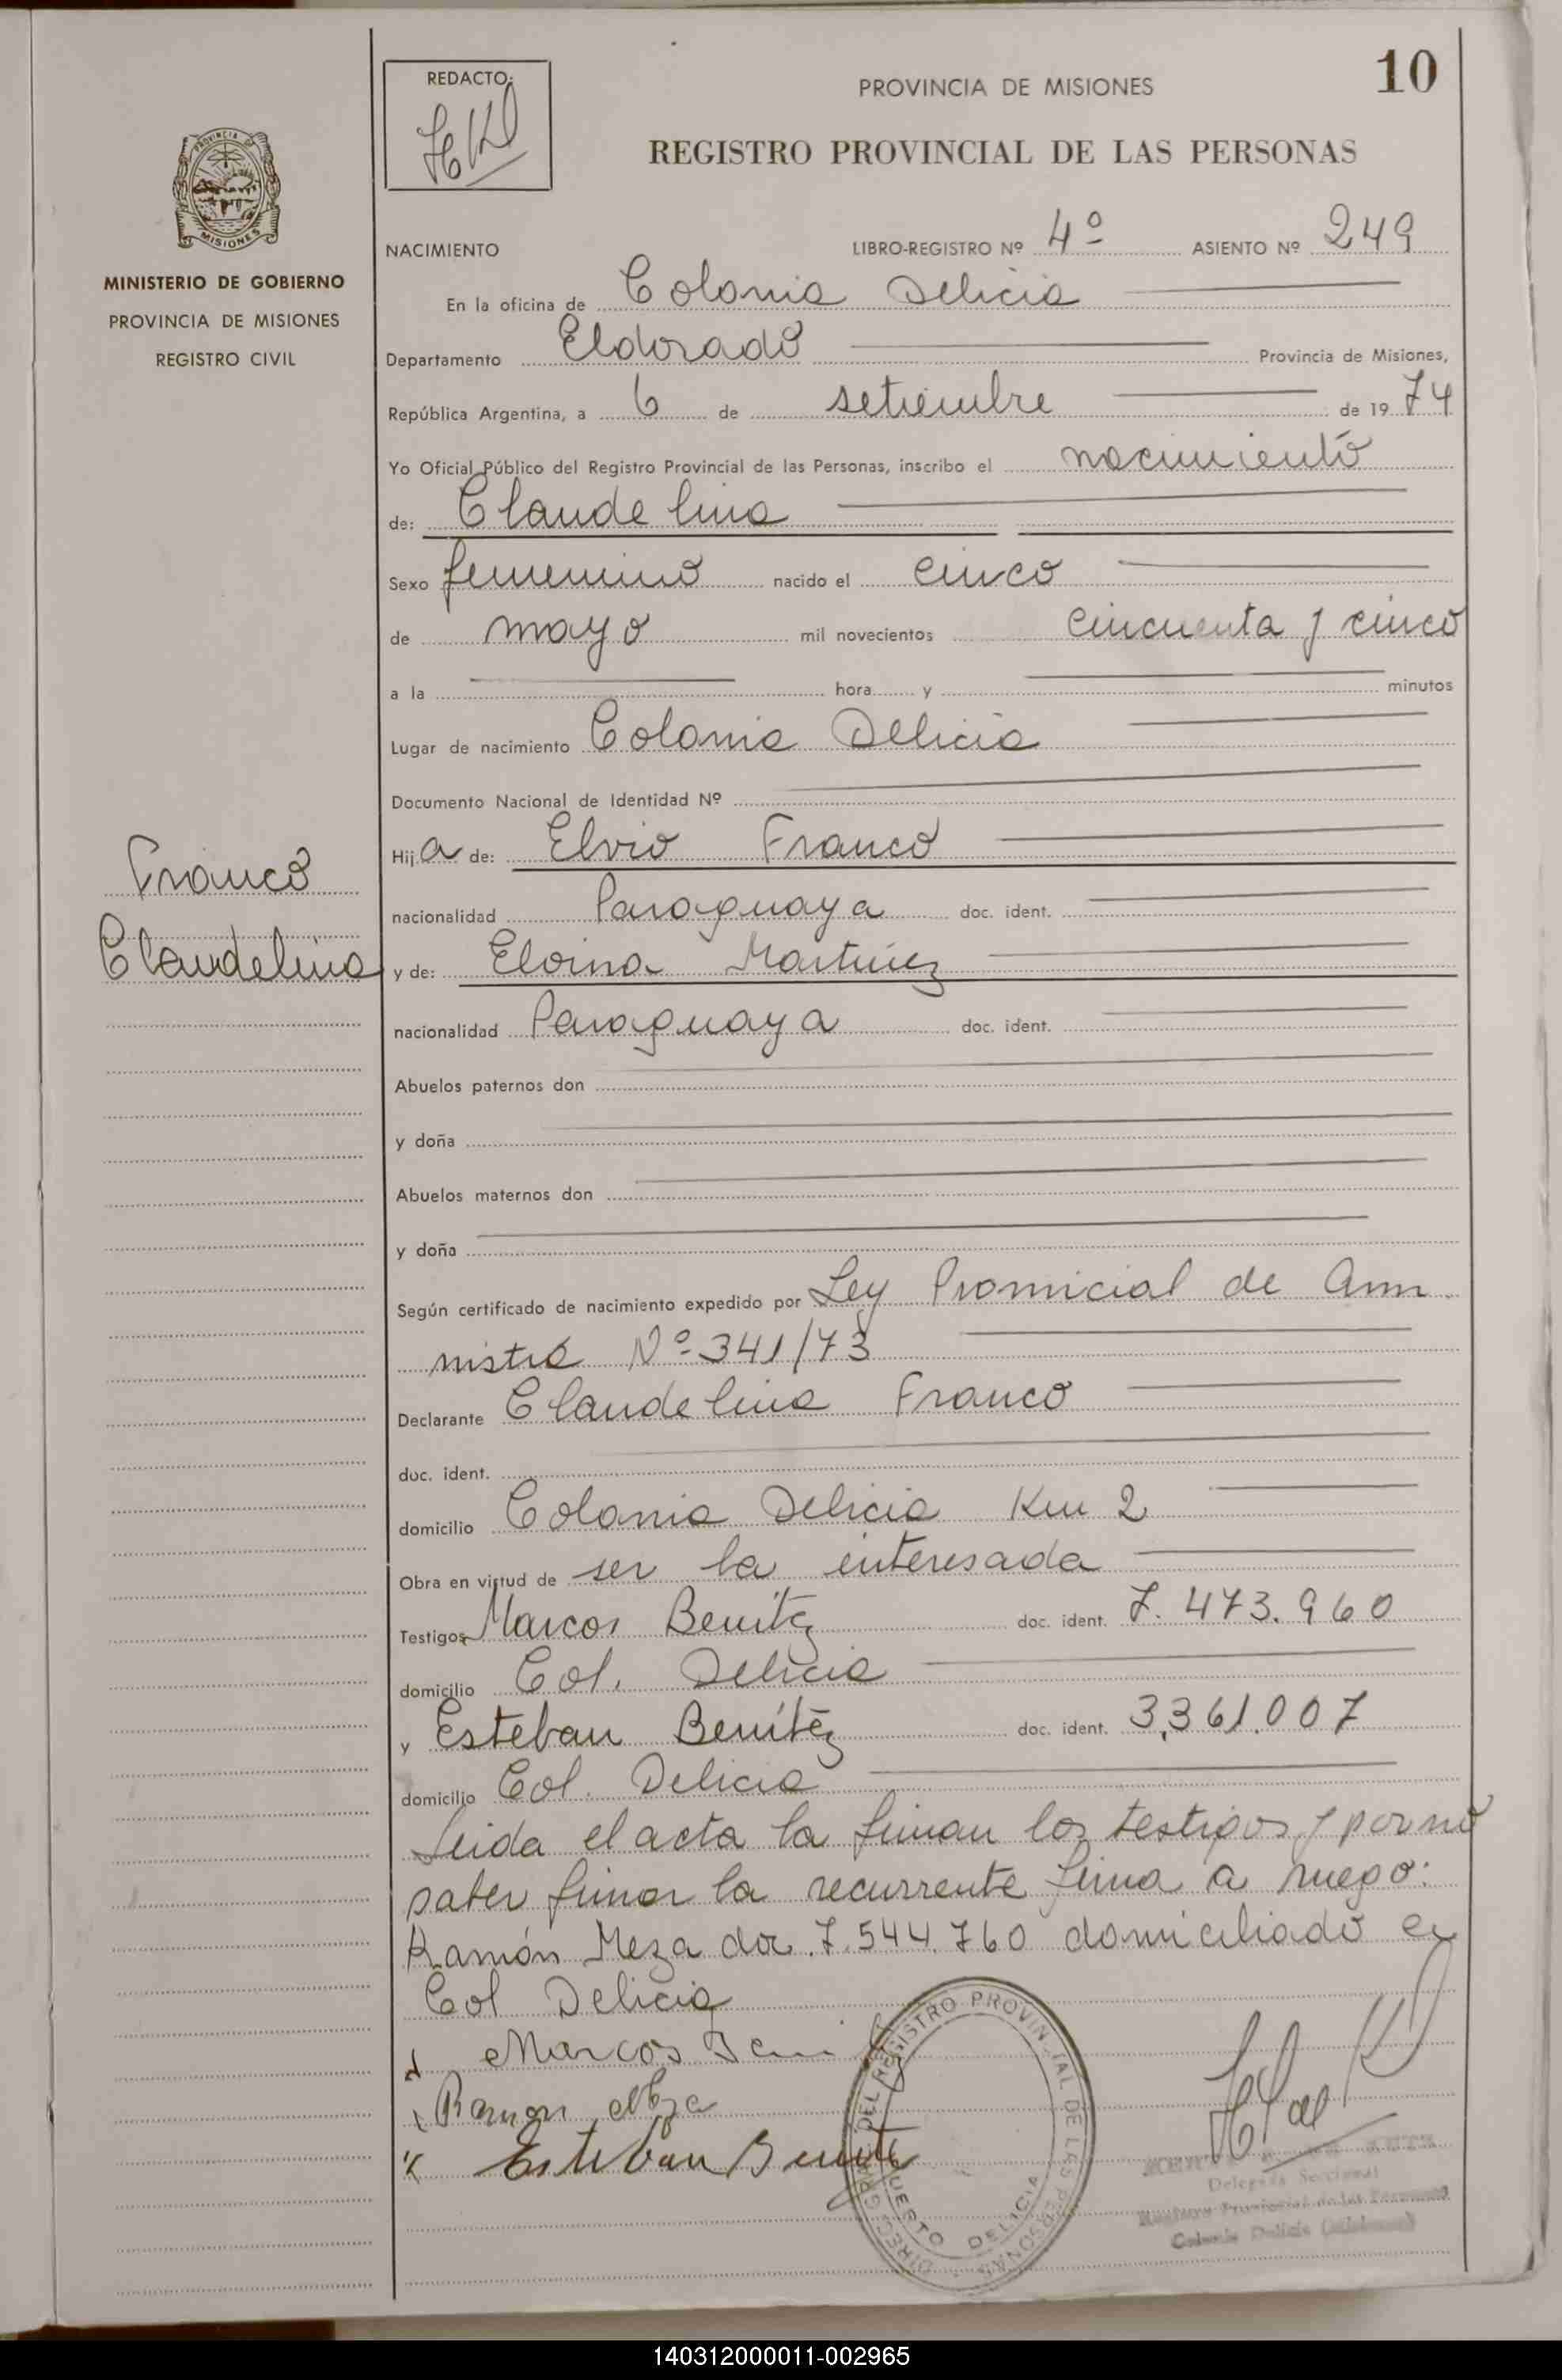 10
REDACTO:
PROVINCIA DE MISIONES
REGISTRO PROVINCIAL DE LAS PERSONAS
PROVINCIA DE
MISIONES
MINISTERIO DE GOBIERNO
PROVINCIA DE MISIONES
REGISTRO CIVIL
NACIMIENTO LIBRO-REGISTRO Nº 4º ASIENTO Nº 249
En la oficina de Colonia Delicia
Departamento Eldorado Provincia de Misiones,
República Argentina, a 6 de setiembre de 1974
Yo Oficial Público del Registro Provincial de las Personas, inscribo el nacimiento
de: Claudelina
Sexo femenino nacido el cinco
de mayo mil novecientos cincuenta y cinco
a la hora y minutos
Lugar de nacimiento Colonia Delicia
Documento Nacional de Identidad Nº
Hija de: Elvio Franco
Franco
nacionalidad Paraguaya doc. ident.
Claudelina
y de: Elvina Martínez
nacionalidad Paraguaya doc. ident.
Abuelos paternos don
y doña
Abuelos maternos don
y doña
Según certificado de nacimiento expedido por Ley Provincial de Am
nistia Nº 341/73
Declarante Claudelina Franco
doc. ident.
domicilio Colonia Delicia Km 2
Obra en virtud de ser la interesada
Testigos Marcos Benítez doc. ident. 7.473.960
domicilio Col. Delicia
y Esteban Benítez doc. ident. 3.361.007
domicilio Col. Delicia
Leida el acta la firman los testigos y por no
saber firmar la recurrente firma a ruego:
Ramón Meza doc. 7.544.760 domiciliado en
Col Delicia
Marcos Beni
Ramon Meza
Esteban Benite
DIRECC. GRAL. DEL REGISTRO PROVINCIAL DE LAS PERSONAS
PUERTO DELICIA
Delegada Seccional
Registro Provincial de las Personas
Colonia Delicia (Misiones)
140312000011-002965